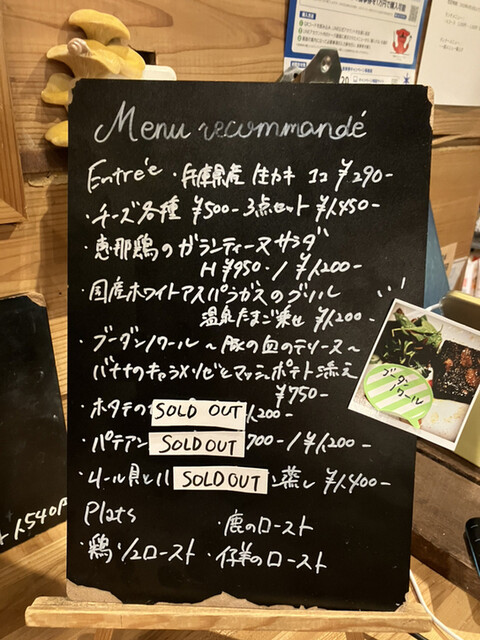 Menu recommandé
Entrée ・兵庫県産 生カキ 1コ ¥290-
・チーズ各種 ¥500- 3点セット ¥1,450-
・恵那鶏のガランティーヌサラダ
H ¥950-/¥1,200-
・国産ホワイトアスパラガスのグリル
温泉たまご乗せ ¥1,200-
・ブーダンノワール ～豚の血のテリーヌ～
バナナのキャラメリゼとマッシュポテト添え
¥750-
・ホタテの SOLD OUT 1,200-
・パテアン SOLD OUT 700-/¥1,200-
・ムール貝と SOLD OUT 蒸し ¥1,400-
Plats
・鹿のロースト
・鶏 1/2ロースト ・仔羊のロースト
ブーダン
ノワール
1,540円